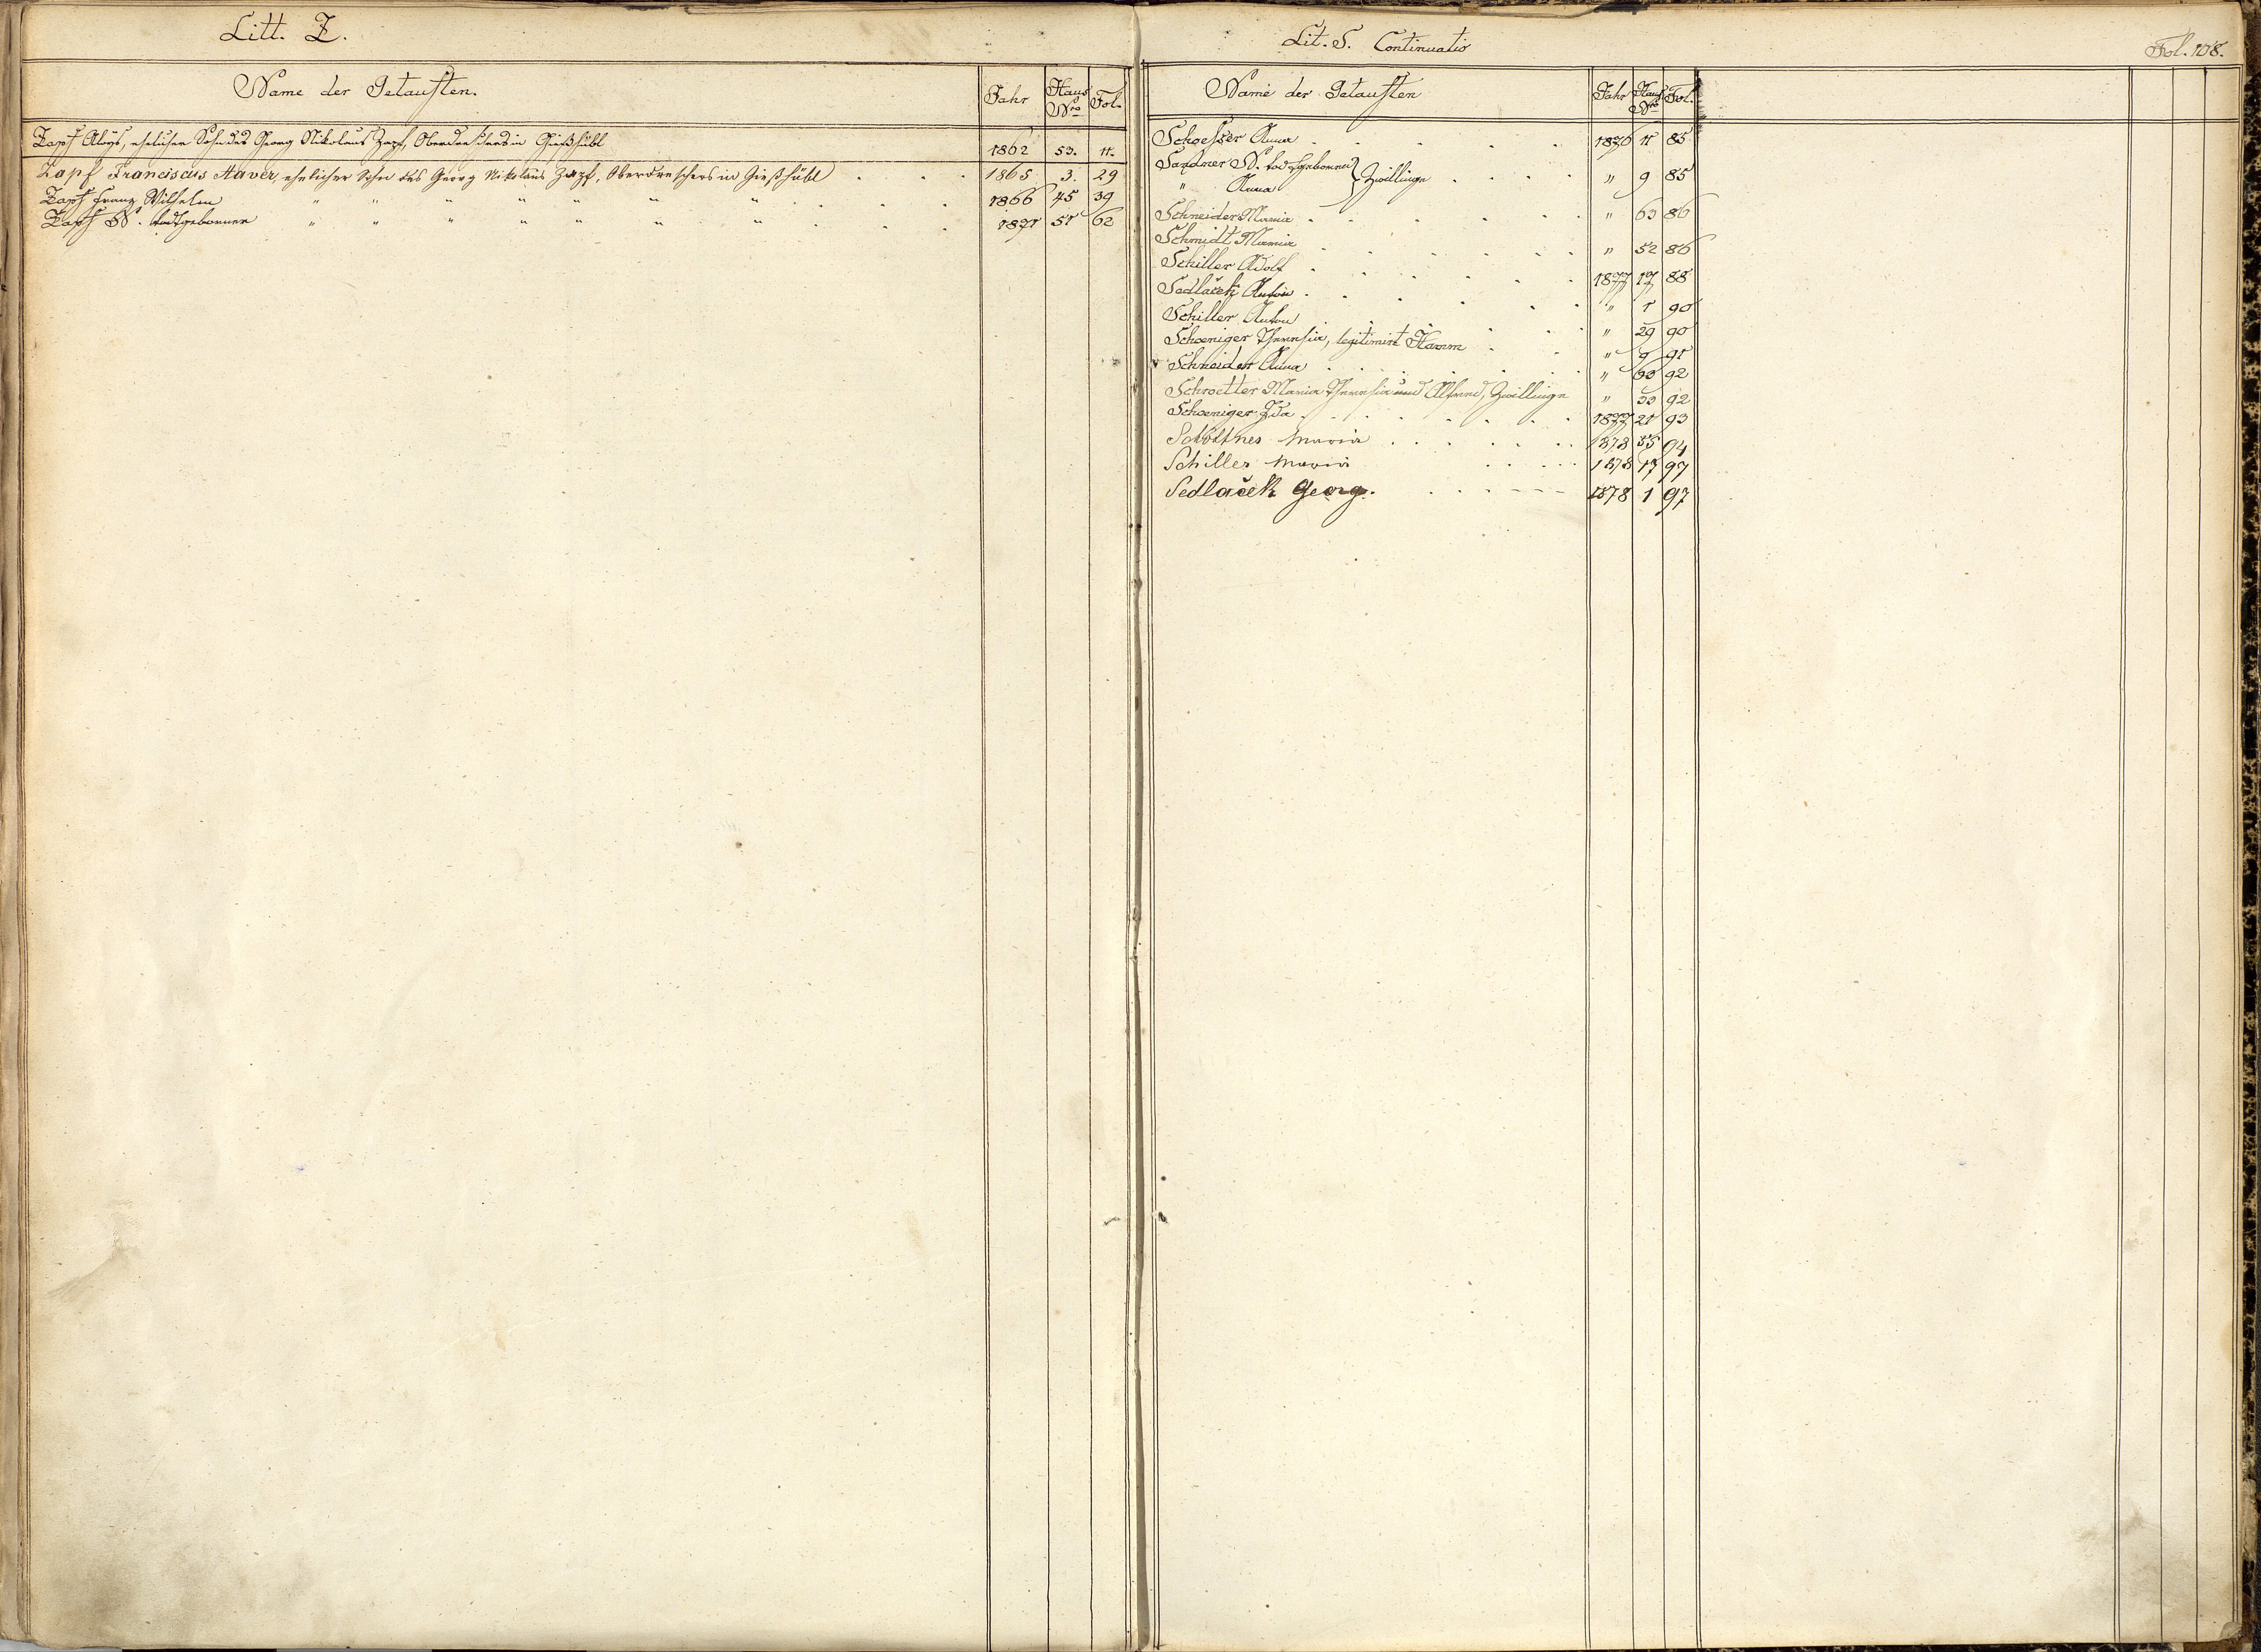 Litt. Z.
Name der Getauften. Jahr Haus Nro Fol.
Zapf Aloys, ehelicher Sohn des Georg Nikolaus Zapf, Oberdreschers in Gießhübl 1862 53. 11.
Zapf Franciscus Xaver, ehelicher Sohn des Georg Nikolaus Zapf, Oberdreschers in Gießhübl . . . 1865 3. 29
Zapf Franz Wilhelm " " " " " " " . . . 1866 45 39
Zapf N. todtgeborner " " " " " " " . . . 1871 51 62
Lit. S. Continuatio
Fol. 108.
Name der Getauften Jahr Haus Nro Fol.
Schoesser Anna . . . . . 1876 11 85
Sandner N. todtgeboren } Zwillinge . . . . " 9 85
" Anna
Schneider Maria . . . . . " 63 86
Schmidt Maria . . . . . " 52 86
Schiller Adolf . . . . . 1877 17 88
Sedlaček Anton . . . . . " 1 90
Schiller Anton . . . . . " 29 90
Schoeniger Theresia, legitimirt Hamm . . " 9 91
Schneider Anna . . . . . " 63 92
Schroetter Maria Theresia und Alfred, Zwillinge " 33 92
Schoeniger Ida . . . . . 1877 21 93
Maria . . . . . 1878 55 94
Schiller Maria . . . . 1878 17 97
Sedlaček Georg. . . . . 1878 1 97